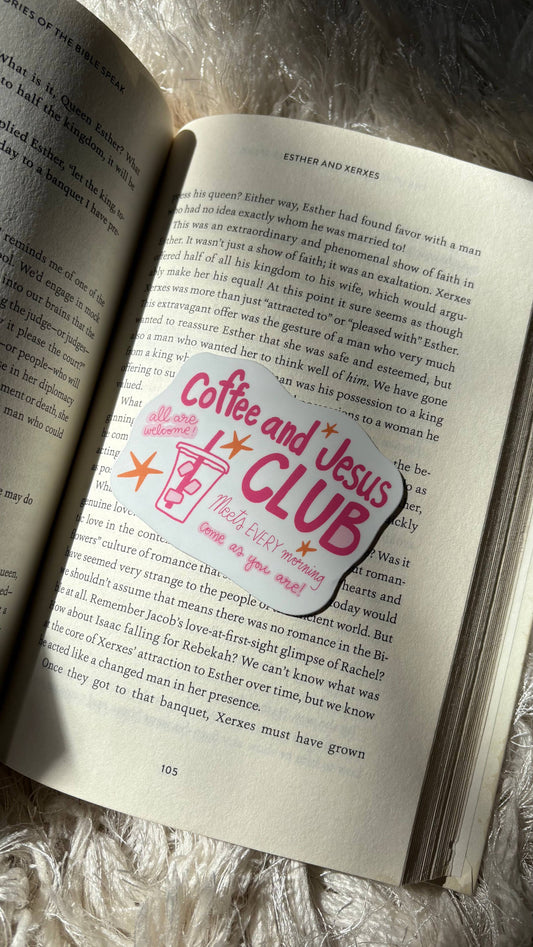 ORIES OF THE BIBLE SPEAK
What is it, Queen Esther? What
to half the kingdom, it will be
plied Esther, "let the king, to-
day to a banquet I have pre-
reminds me of one of the
ool. We'd engage in mock
into our brains that the
ng the judge—or judges—
it please the court?"
—or people—who will
se in her diplomacy
ment or death, she
man who could
e may do
ueen,
ESTHER AND XERXES
ess his queen? Either way, Esther had found favor with a man
who had no idea exactly whom he was married to!
This was an extraordinary and phenomenal show of faith in
Esther. It wasn't just a show of faith; it was an exaltation. Xerxes
offered half of all his kingdom to his wife, which would argu-
ably make her his equal! At this point it sure seems as though
Xerxes was more than just "attracted to" or "pleased with" Esther.
This extravagant offer was the gesture of a man who very much
wanted to reassure Esther that she was safe and esteemed, but
also a man who wanted her to think well of him. We have gone
from a king wh man was his possession to a king
offering to su ssions to a woman he
valued.
What the be-
ginning so as
acting
as pos quickly
genuine love Was it
or love in the conte roman-
flowers" culture of romance th hearts and
have seemed very strange to the people of cient world. But
we shouldn't assume that means there was no romance in the Bi-
ble at all. Remember Jacob's love-at-first-sight glimpse of Rachel?
How about Isaac falling for Rebekah? We can't know what was
at the core of Xerxes' attraction to Esther over time, but we know
he acted like a changed man in her presence.
Once they got to that banquet, Xerxes must have grown
105
Coffee and Jesus
CLUB
all are
welcome!
Meets EVERY morning
come as you are!